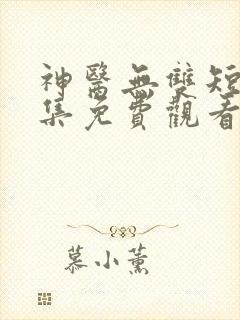 神醫無雙短
集免費觀看
慕小薰